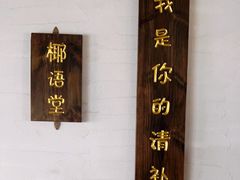 椰语堂
我是你的清补